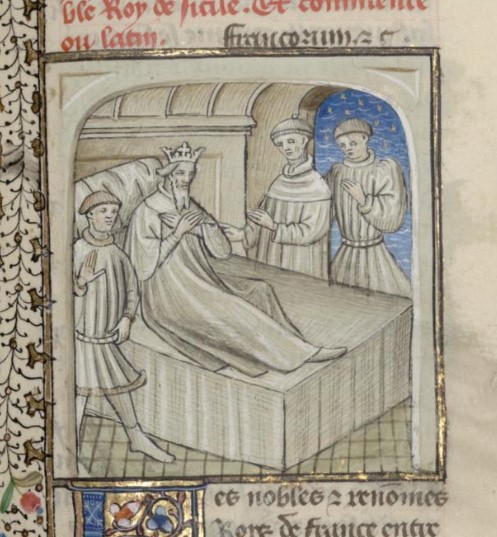 ble Roy de sicile. Et commence
ou latin. francorum. ⁊ c̄.
es nobles ⁊ renōmes
Roys de france entre